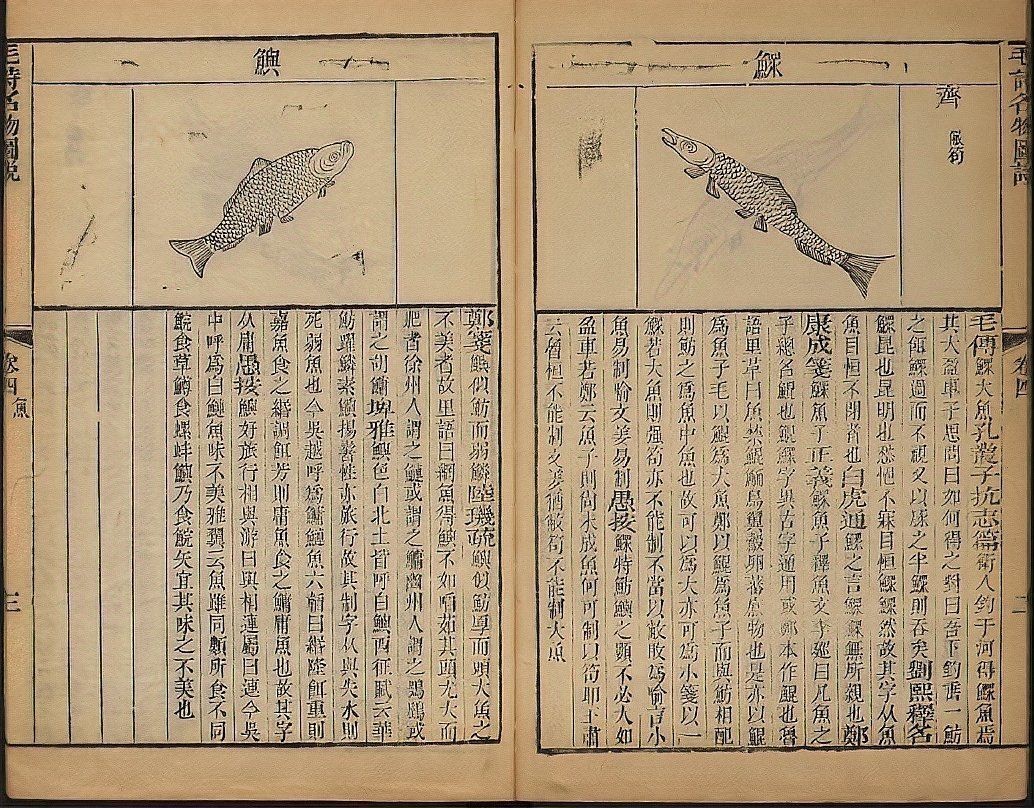 毛詩名物圖說 卷四 二
鰥
齊 敝笱
毛傳鰥大魚孔叢子抗志篇衛人釣于河得鰥魚焉
其大盈車子思問曰如何得之對曰吾下釣垂一魴
之餌鰥過而不視又以豚之半鰥則吞矣劉熙釋名
鰥昆也昆明也愁悒不寐目恒鰥鰥然故其字从魚
魚目恒不閉者也白虎通鰥之言鰥鰥無所親也鄭
康成箋鰥魚子正義鰥魚子釋魚文李巡曰凡魚之
子總名鯤也鯤鰥字異古字通用或鄭本作鯤也魯
語里革曰魚禁鯤鮞鳥翼鷇卵蕃庶物也是亦以鯤
為魚子毛以鯤為大魚鄭以鯤為魚子而與魴相配
則魴之為魚中魚也故可以為大亦可為小箋以一
鰥若大魚則强笱亦不能制不當以敝敗為喻言小
魚易制喻文姜易制愚按鰥特魴鱮之類不必大如
盈車若鄭云魚子則尚未成魚何可制以笱耶王肅
云魯桓不能制文姜猶敝笱不能制大魚
鱮
鄭箋鱮似魴而弱鱗陸璣疏鱮似魴厚而頭大魚之
不美者故里語曰網魚得鱮不如啗茹其頭尤大而
肥者徐州人謂之鰱或謂之鱅幽州人謂之鴞鶚或
謂之胡鱅埤雅鱮色白北土皆呼白鱮西征賦云華
魴躍鱗素鱮揚鬐性亦旅行故其制字从與失水則
死弱魚也今吳越呼為鱅鰱魚六韜曰緡隆餌重則
嘉魚食之緡調餌芳則庸魚食之鱅庸魚也故其字
从庸愚按鱮好旅行相與游曰與相連屬曰連今吳
中呼為白鰱魚味不美雅翼云魚雖同類所食不同
鯇食草鱒食螺蚌鱮乃食鯇矢宜其味之不美也
毛詩名物圖說 卷四 魚 三